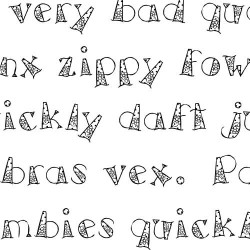 very bad qu
nx zippy fow
ickly daft ju
bras vex. Po
mbies quickl